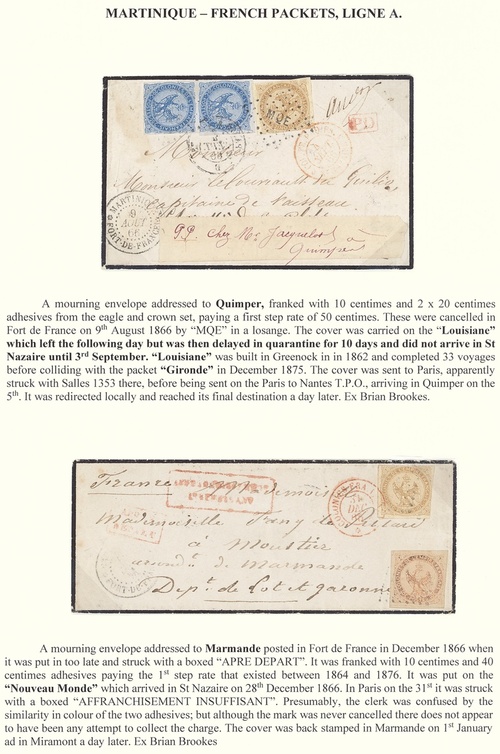 MARTINIQUE – FRENCH PACKETS, LIGNE A.
MQE
PD
Monsieur
Capitaine de Vaisseau
P.P. chez Mr Jacquelot
à
Quimper
MARTINIQUE
9
AOUT
66
FORT-DE-FRANCE
A mourning envelope addressed to Quimper, franked with 10 centimes and 2 x 20 centimes
adhesives from the eagle and crown set, paying a first step rate of 50 centimes. These were cancelled in
Fort de France on 9th August 1866 by “MQE” in a losange. The cover was carried on the “Louisiane”
which left the following day but was then delayed in quarantine for 10 days and did not arrive in St
Nazaire until 3rd September. “Louisiane” was built in Greenock in in 1862 and completed 33 voyages
before colliding with the packet “Gironde” in December 1875. The cover was sent to Paris, apparently
struck with Salles 1353 there, before being sent on the Paris to Nantes T.P.O., arriving in Quimper on the
5th. It was redirected locally and reached its final destination a day later. Ex Brian Brookes.
France
Mademoiselle Fany de
à Moustier
de Marmande
Dept. de Lot et garonne
A mourning envelope addressed to Marmande posted in Fort de France in December 1866 when
it was put in too late and struck with a boxed “APRE DEPART”. It was franked with 10 centimes and 40
centimes adhesives paying the 1st step rate that existed between 1864 and 1876. It was put on the
“Nouveau Monde” which arrived in St Nazaire on 28th December 1866. In Paris on the 31st it was struck
with a boxed “AFFRANCHISEMENT INSUFFISANT”. Presumably, the clerk was confused by the
similarity in colour of the two adhesives; but although the mark was never cancelled there does not appear
to have been any attempt to collect the charge. The cover was back stamped in Marmande on 1st January
ad in Miramont a day later. Ex Brian Brookes